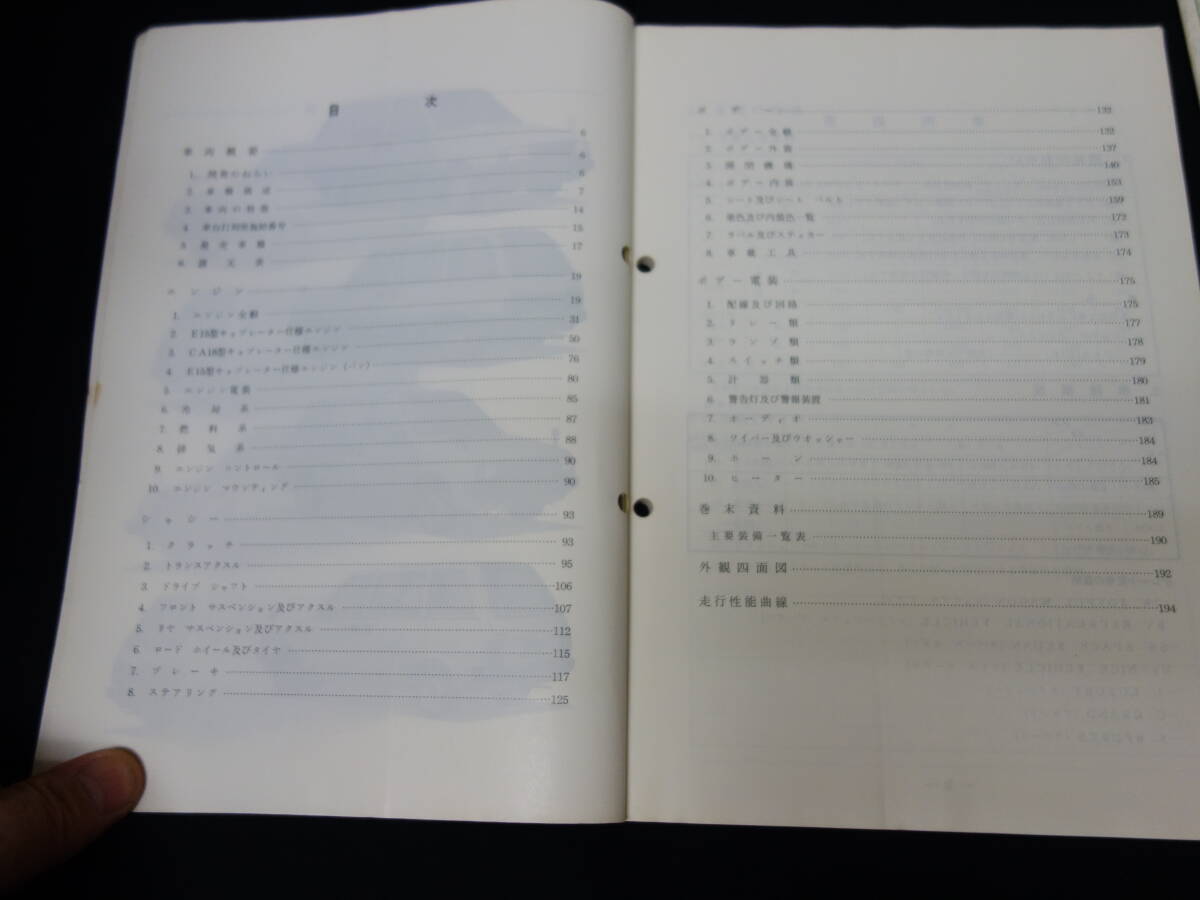 目　次
車両概要 6
1. 開発のねらい 6
2. 車種構成 6
3. 車両の特徴 7
4. 車台打刻開始番号 14
5. 発売車種 15
6. 諸元表 17
エンジン 19
1. エンジン全般 19
2. E15型キャブレーター仕様エンジン 31
3. CA18型キャブレーター仕様エンジン 50
4. E15型キャブレーター仕様エンジン(バン) 76
5. エンジン電装 80
6. 冷却系 85
7. 燃料系 87
8. 排気系 88
9. エンジン コントロール 90
10. エンジン マウンティング 90
シャシー 93
1. クラッチ 93
2. トランスアクスル 95
3. ドライブ シャフト 106
4. フロント サスペンション及びアクスル 107
5. リヤ サスペンション及びアクスル 112
6. ロード ホイール及びタイヤ 115
7. ブレーキ 117
8. ステアリング 125
ボデー 132
1. ボデー全般 132
2. ボデー外装 137
3. 開閉機構 140
4. ボデー内装 153
5. シート及びシート ベルト 159
6. 車色及び内装色一覧 172
7. ラベル及びステッカー 173
8. 車載工具 174
ボデー電装 175
1. 配線及び回路 175
2. リレー類 177
3. ランプ類 178
4. スイッチ類 179
5. 計器類 180
6. 警告灯及び警報装置 181
7. オーディオ 183
8. ワイパー及びウォッシャー 184
9. ホーン 184
10. ヒーター 185
巻末資料 189
主要装備一覧表 190
外観四面図 192
走行性能曲線 194